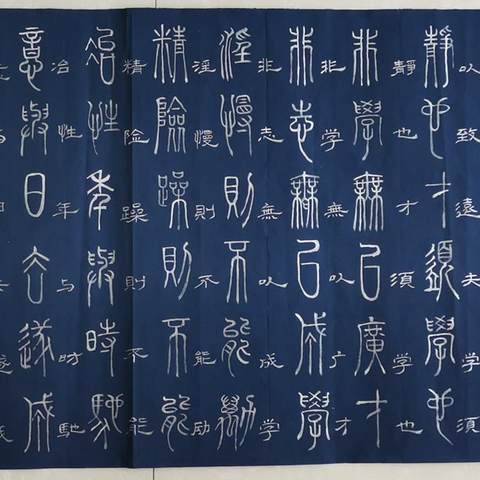 以致遠夫学须
靜也才須學也
靜也才须学也
非學無以廣才
非学無以广才
非志無以成學
非志無以成学
淫慢則不能勵
淫慢則不能励
精險躁則不能
精险躁則不能
冶性年與時馳
冶性年与时馳
意與日去遂成